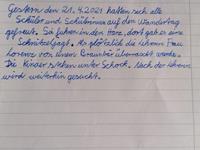 Gestern den 21.4.2021 hatten sich alle
Schüler und Schülerinnen auf den Wandertag
gefreut. Sie fuhren in den Harz, dort gab es eine
Schnitzeljagt. Als plötzlich die Lehrerin Frau
Lorenz von einem Braunbär überrascht wurde.
Die Kinder stehen unter Schock. Nach der Lehrerin
wird weiterhin gesucht.